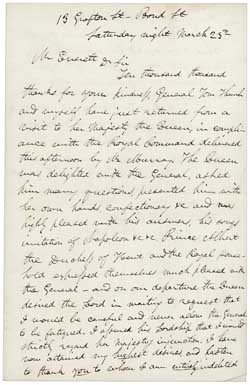 13 Grafton St - Bond St
Saturday night March 23d
Mr Everett Dr Sir
Ten thousand thousand
thanks for your kindness, General Tom Thumb
and myself have just returned from a
visit to her Majesty the Queen, in compli-
ance with the Royal Command delivered
this afternoon by Mr Murray. The Queen
was delighted with the General, asked
him many questions, presented him with
her own hands confectionery &c and was
highly pleased with his answers, his songs
imitation of Napoleon &c &c. Prince Albert
the Duchess of Kent and the Royal House-
hold expressed themselves much pleased with
the General - and on our departure the Queen
desired the Lord in waiting to request that
I would be careful and never allow the General
to be fatigued. I assured his Lordship that I would
strictly regard her majesty's injunction. I have
now attained my highest desires and hasten
to thank you to whom I am entirely indebted